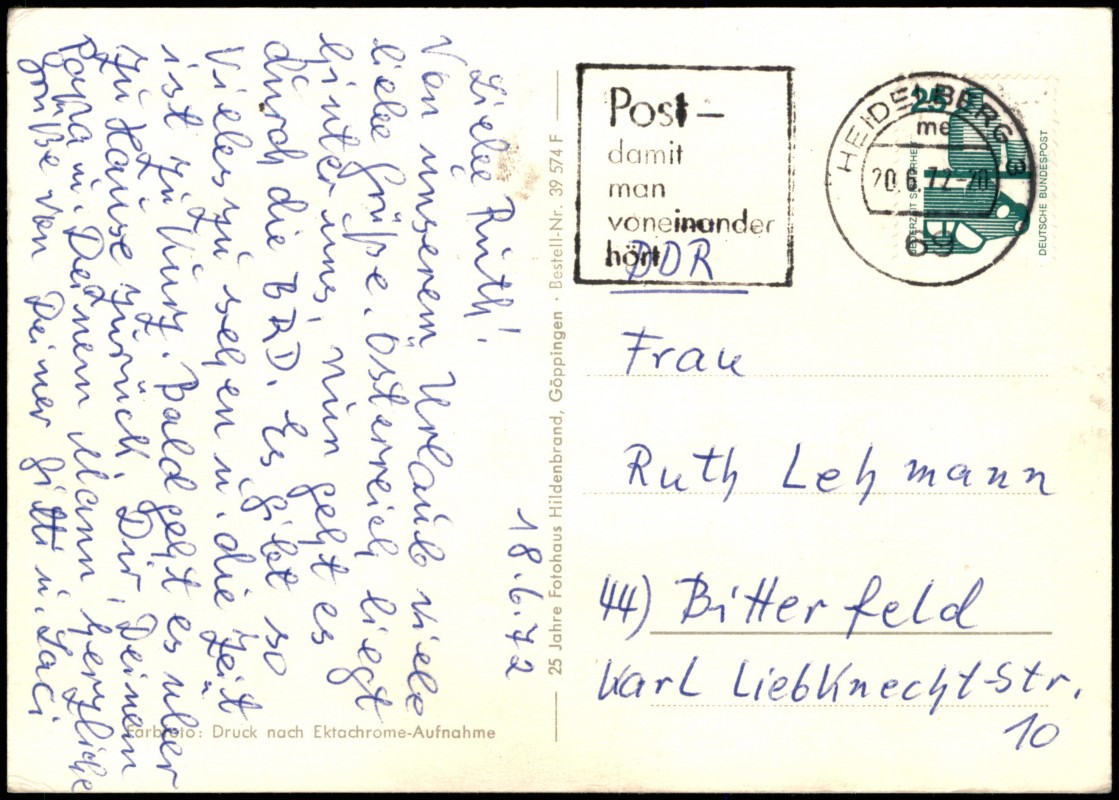 18.6.72
Liebe Ruth!
Von unserem Urlaub viele
liebe Grüße. Österreich liegt
hinter uns, nun geht es
durch die BRD. Es gibt so
vieles zu sehen u. die Zeit
ist zu kurz. Bald geht es über
zu Hause zurück. Dir, Deinem
Papa u. Deinem Mann, herzliche
Grüße von Deiner Gitti u. Laci
Farbfoto: Druck nach Ektachrome-Aufnahme
25 Jahre Fotohaus Hildenbrand, Göppingen · Bestell-Nr. 39 574 F
Post –
damit
man
voneinander
hört
HEIDELBERG
me
20.6.72-20
a
69
25
JEDERZEIT SICHERHEIT
DEUTSCHE BUNDESPOST
DDR
Frau
Ruth Lehmann
44) Bitterfeld
Karl Liebknecht-Str.
10